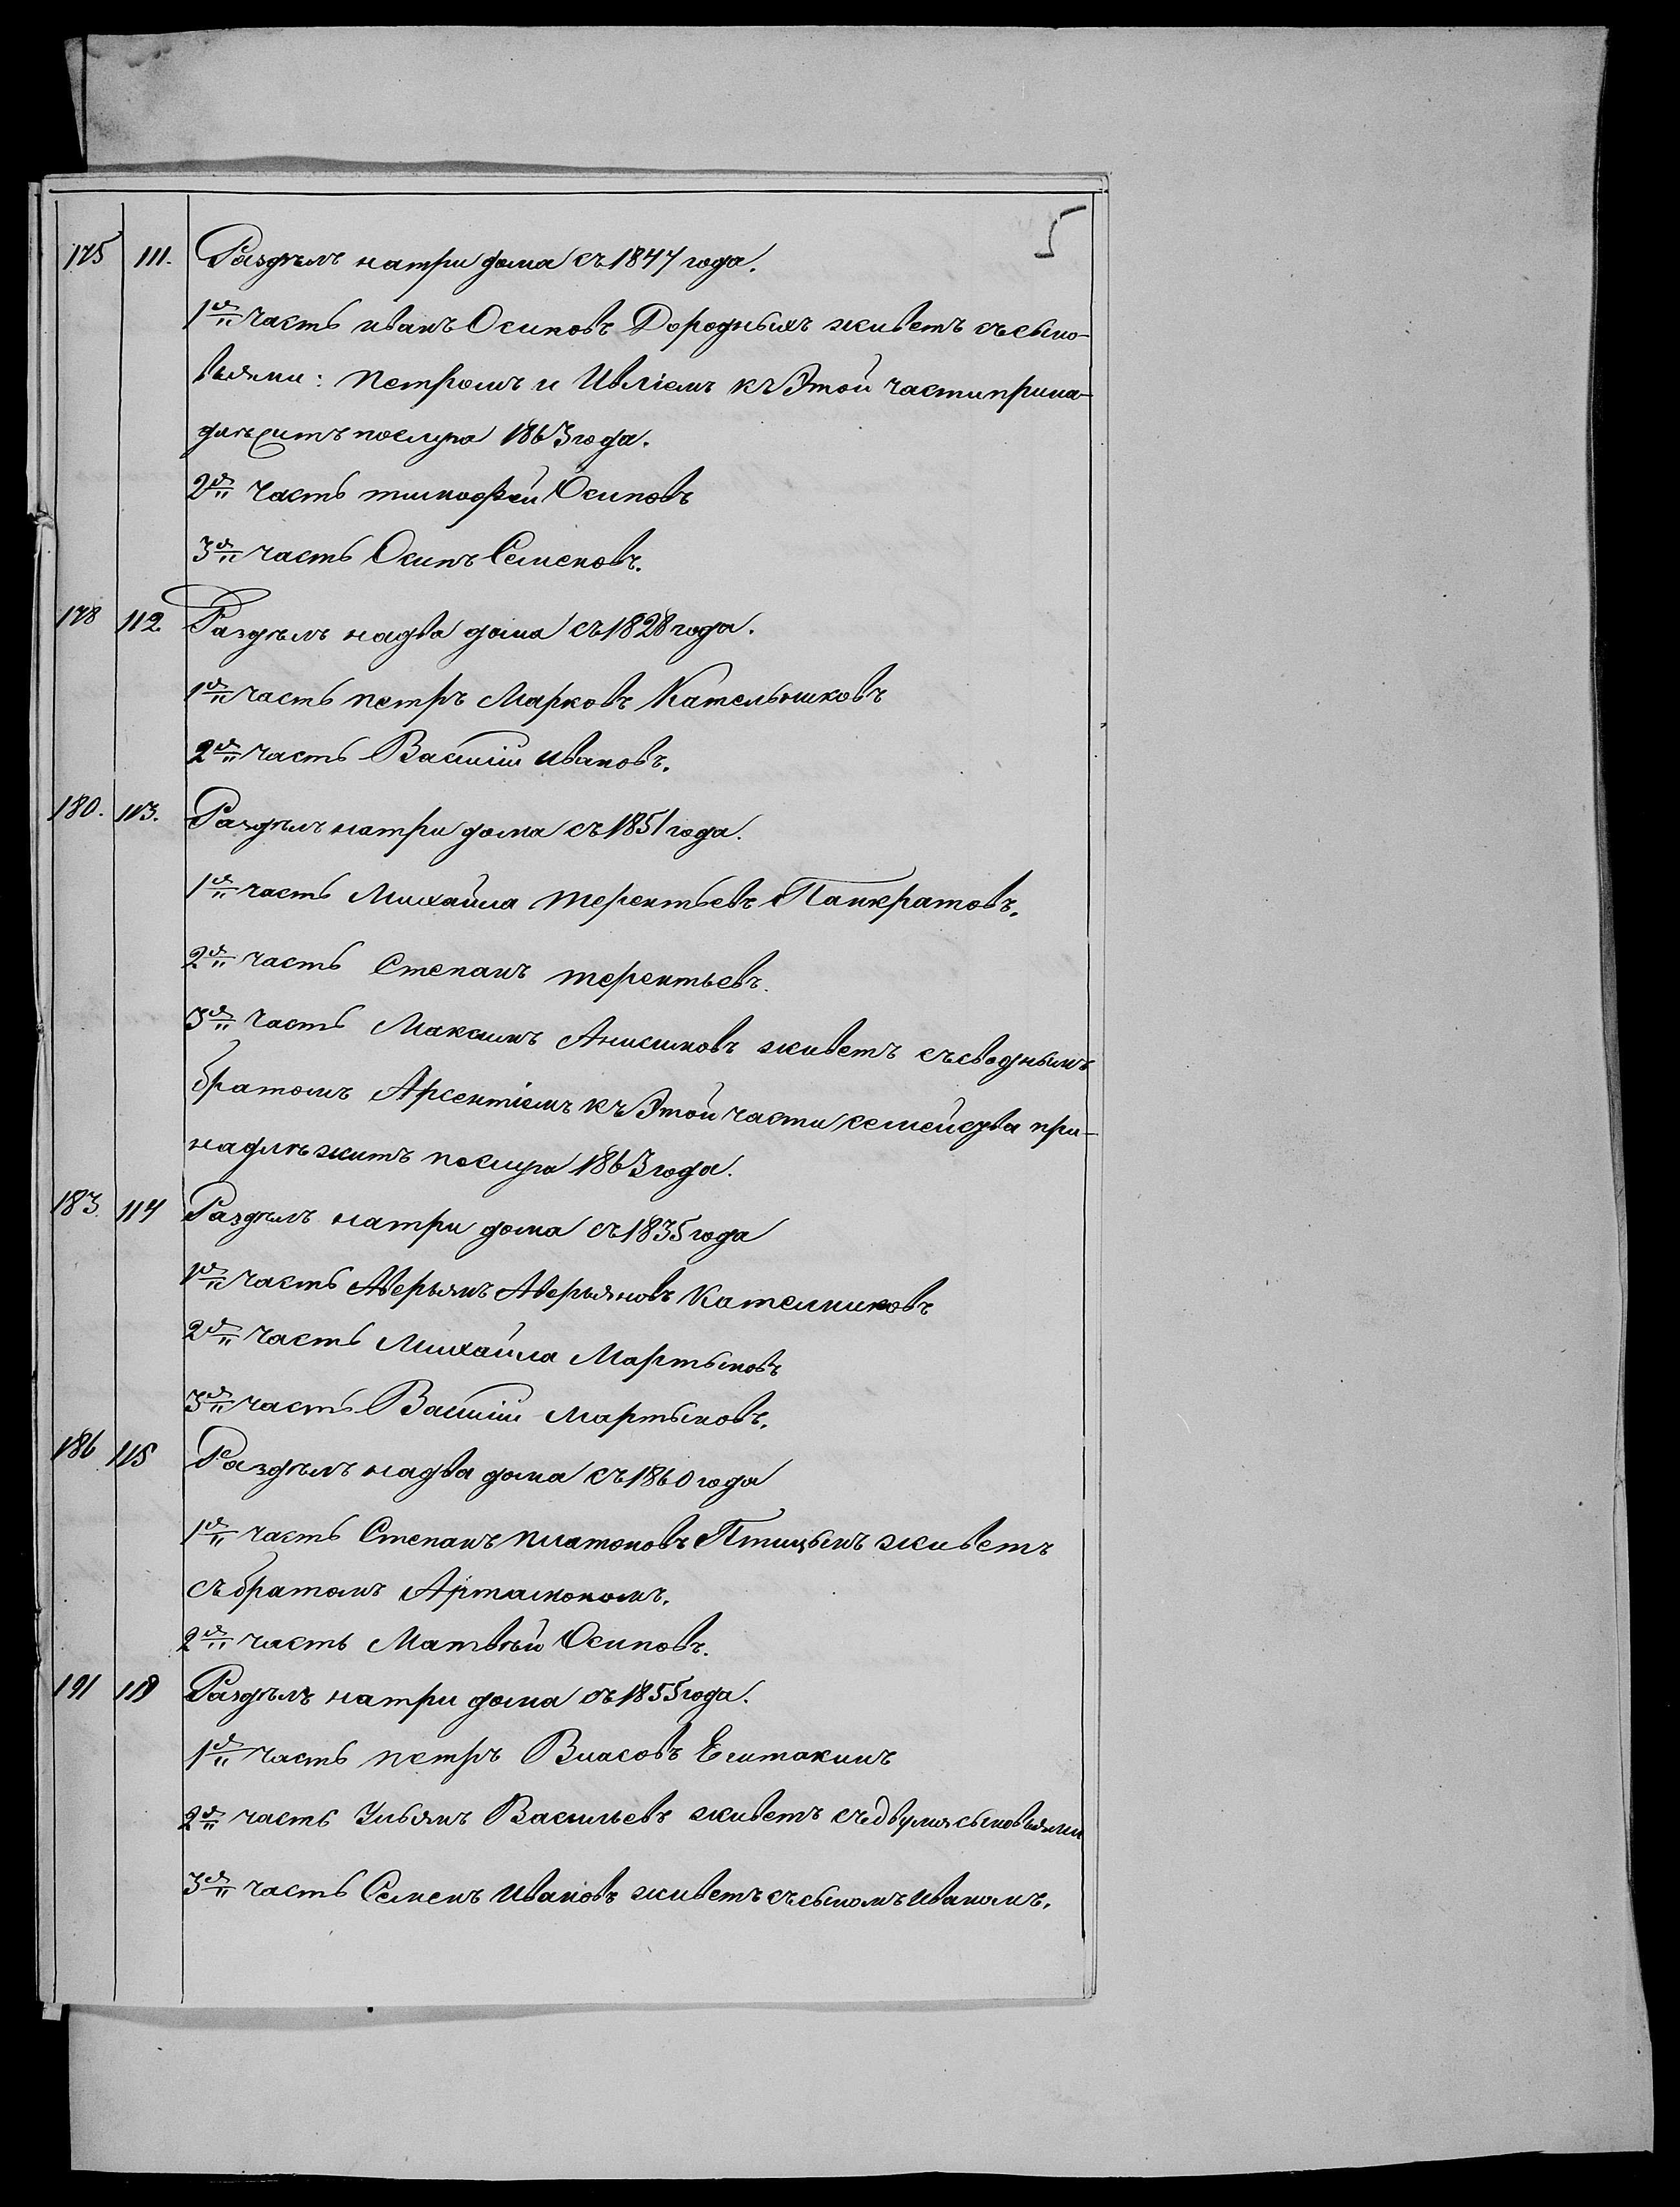 5
175 111. Раздѣлъ натри дома съ 1847 года.
1я часть иванъ Осиповъ Дородныхъ живетъ съсыно-
вьями: петромъ и Ивліемъ къ Этой частиприна-
длѣжитъ послуга 1863 года.
2я часть тимофей Осиповъ
3я часть Осипъ Семеновъ.
178 112 Раздѣлъ надва дома съ 1828 года.
1я часть петръ Марковъ Кательниковъ
2я часть Василій ивановъ.
180. 113. Раздѣлъ натри дома съ 1851 года.
1я часть Михайла терентьевъ Панкратовъ.
2я часть Степанъ терентьевъ.
3я часть Максимъ Анисимовъ живетъ съсводнымъ
братомъ Арсентіемъ къ Этой части семейства при-
надлѣжитъ послуга 1863 года.
183. 114 Раздѣлъ натри дома съ 1835 года
1я часть Аверьянъ Аверьяновъ Кателниковъ
2я часть Михайла Мартыновъ
3я часть Василій Мартыновъ.
186 115 Раздѣлъ надва дома съ 1860 года
1я часть Степанъ платоновъ Птицынъ живетъ
съ братомъ Артамономъ.
2я часть Матвѣй Осиповъ.
191 119 Раздѣлъ натри дома съ 1855 года.
1я часть петръ Власовъ Елтакинъ
2я часть Ульянъ Васильевъ живетъ съдвумя сыновьями
3я часть Семенъ ивановъ живетъ съсыномъ иваномъ.